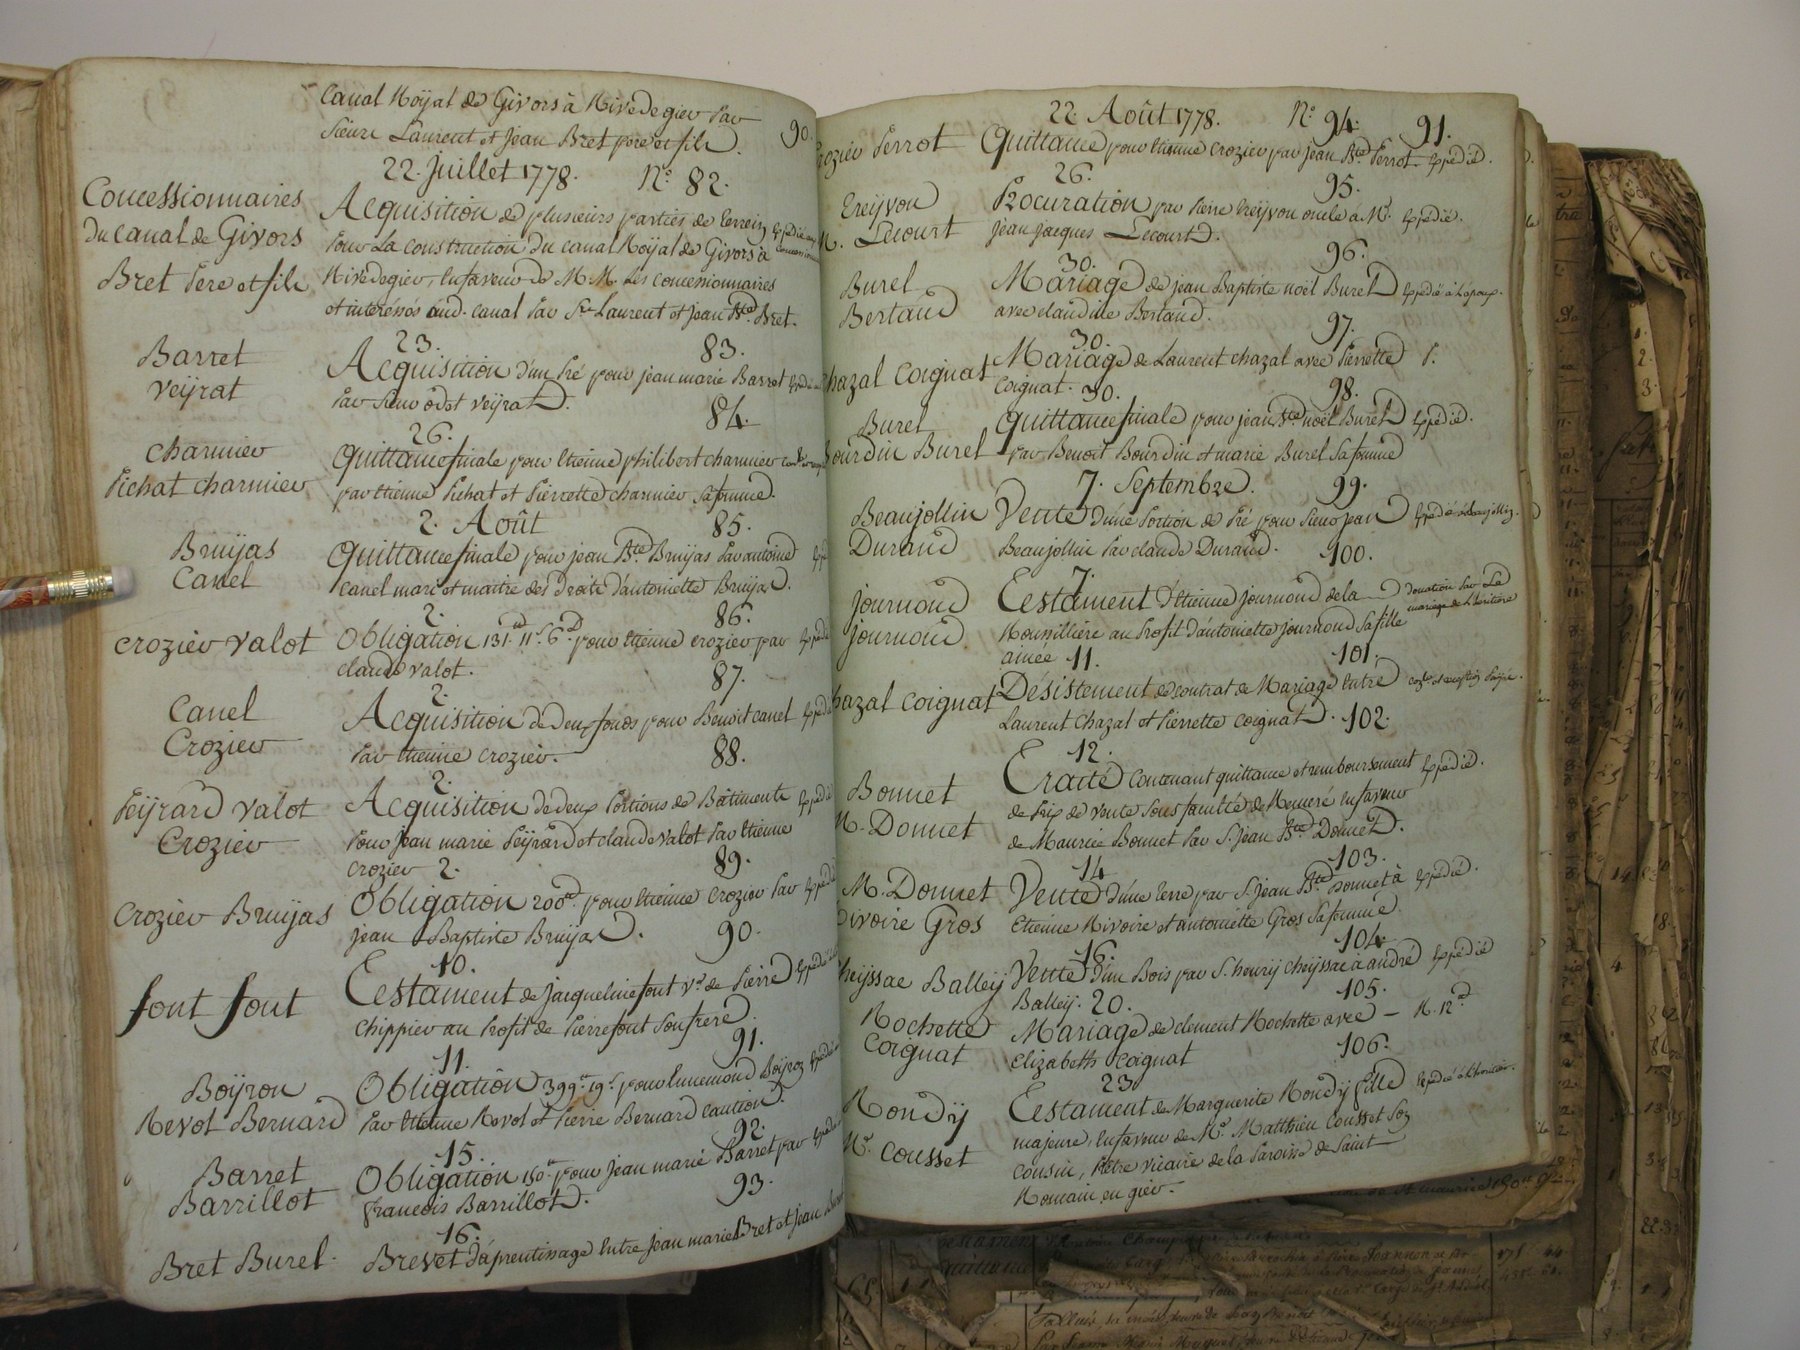 Canal Roÿal de Givors à Rivedegier Par
Sieurs Laurent et Jean Bret pere et fils.
90.
22. Juillet 1778. N.° 82.
Concessionnaires
du canal de Givors
Bret Pere et fils
Acquisition de plusieurs parties de terrein
Pour La construction du canal Roÿal de Givors à
Rivedegier, en faveur de M.M. Les concessionnaires
et intéréssés aud. canal Par Srs Laurent et Jean Bte Bret.
23. 83.
Barret
Veÿrat
Acquisition d'un Pré pour jean marie Barret
Par Sieur odet Veÿrat.
26. 84.
Charmier
Pichat charmier
Quittance finale pour Etienne philibert charmier
par Etienne Pichat et Pierrette charmier sa femme.
2. Août 85.
Bruÿas
Canel
Quittance finale pour jean Bte Bruÿas Par antoine
Canel mari et maitre des Droits d'antoinette Bruÿas.
2. 86.
Crozier Valot
Obligation 131tt 11s 6d pour Etienne crozier par Expédié
claude valot.
2. 87.
Canel
Crozier
Acquisition de Deux fonds pour Benoit canel Expédié
Par Etienne crozier.
2. 88.
Peÿrard Valot
Crozier
Acquisition de deux Portions de Bâtiments Expédié
Pour Jean marie Peÿrard et claude valot Par Etienne
crozier
2. 89.
Crozier Bruÿas
Obligation 200tt pour Etienne Crozier Par Expédié
Jean Baptiste Bruÿas.
10. 90.
font font
Testament de Jacqueline font Ve de Pierre Expédié
Chippier au Profit de Pierre font son frere.
11. 91.
Boÿron
Revol Bernard
Obligation 399tt 19s pour Ennemond Boÿron Expédié
Par Etienne Revol et Pierre Bernard caution.
15. 92.
Barret
Barrillot
Obligation 150tt pour jean marie Barret par Expédié
françois Barrillot.
16. 93.
Bret Burel.
Brevet d'aprentissage Entre jean marie Bret et jean Burel
22 Août 1778. N.° 94. 91.
Crozier Perrot
Quittance pour Etienne Crozier par Jean Bte Perrot. Expédié.
26. 95.
Treÿvon
M. Lecourt
Procuration par Pierre treÿvon oncle à Mr Expédié.
Jean Jacques Lecourt.
30. 96.
Burel
Bertaud
Mariage de jean Baptiste noël Burel Expédié à L'epoux.
avec claudine Bertaud.
30. 97.
Chazal Coignat
Mariage de Laurent chazal avec Pierrette
Coignat.
30. 98.
Burel
Bourdin Burel
Quittance finale pour jean Bte noël Burel Expédié.
par Benoit Bourdin et marie Burel sa femme
7. Septembre. 99.
Beaujollin
Durand
Vente d'une Portion de Pré pour Sieur Jean Expédié à Beaujollin.
Beaujollin Par claude Durand.
7. 100.
Journoud
Journoud
Testament d'Etienne Journoud de la
Rousilliere au Profit d'antoinette journoud sa fille
ainée
donation Par Le
mariage de L'héritiere
11. 101.
Chazal Coignat
Désistement de contrat de Mariage Entre
Laurent Chazal et Pierrette Coignat.
12. 102.
Bonnet
M. Donnet
Traité Contenant quittance et remboursement Expédié.
de Prix de vente sous faculté de Remeré En faveur
de Maurice Bonnet Par S. Jean Bte Donnet.
14 103.
M. Donnet
Rivoire Gros
Vente d'une terre par S. Jean Bte Donnet à Expédié.
Etienne Rivoire et antoinette Gros sa femme.
16. 104.
Cheÿssac Balleÿ
Vente d'un Bois par S. henrÿ Cheÿssac à andré Expédié
Balleÿ.
20. 105.
Rochette
Coignat
Mariage de clement Rochette avec
Elizabeth Coignat
23 106.
Rondÿ
Mr. Cousset
Testament de Marguerite Rondÿ fille Expédié à L'heritier.
majeure, En faveur de Mr. Matthieu Cousset son
cousin, Prêtre vicaire de la Paroisse de Saint
Romain en gier.